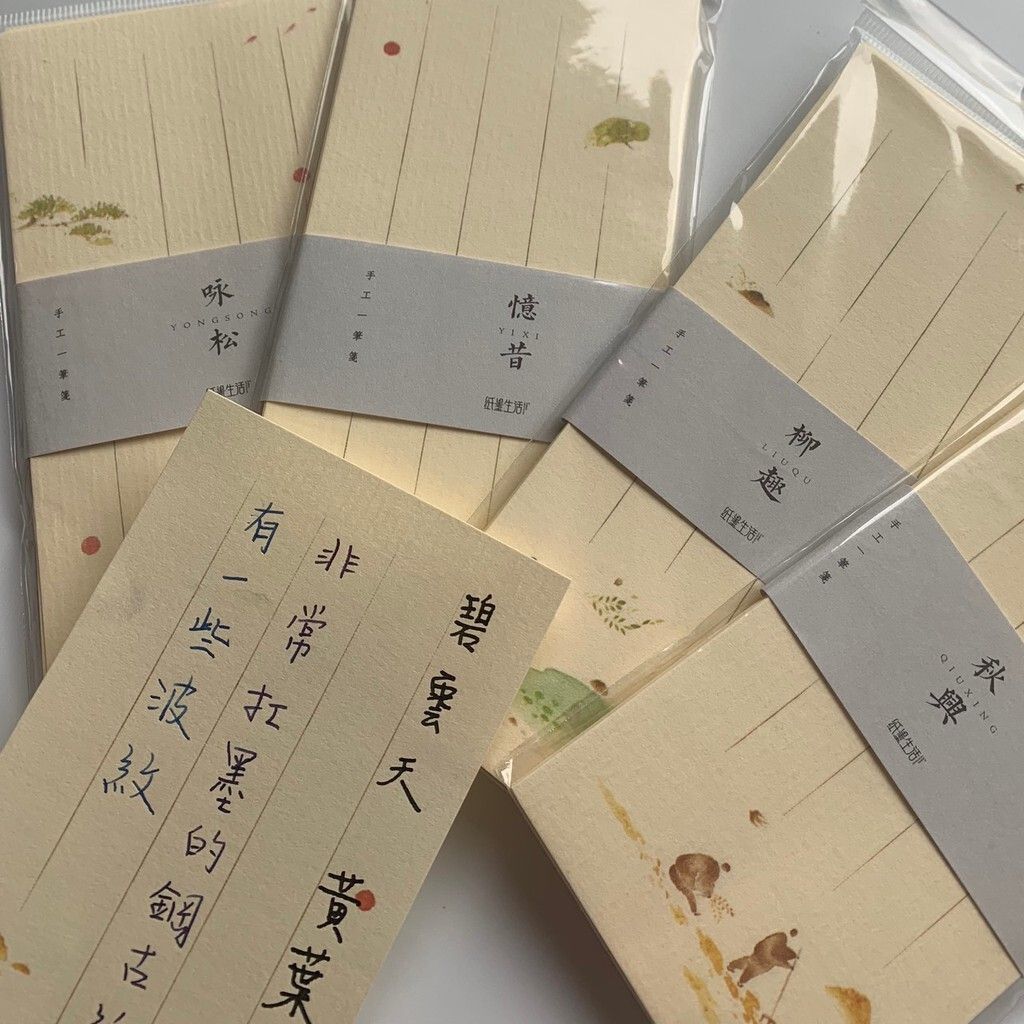 手工一筆箋
咏松
YONGSONG
紙邊生活
手工一筆箋
憶昔
YIXI
紙邊生活
手工一筆箋
柳趣
LIUQU
紙邊生活
手工一筆箋
秋興
QIUXING
紙邊生活
碧雲天 黃葉
非常扛墨的鋼古
有一些波紋